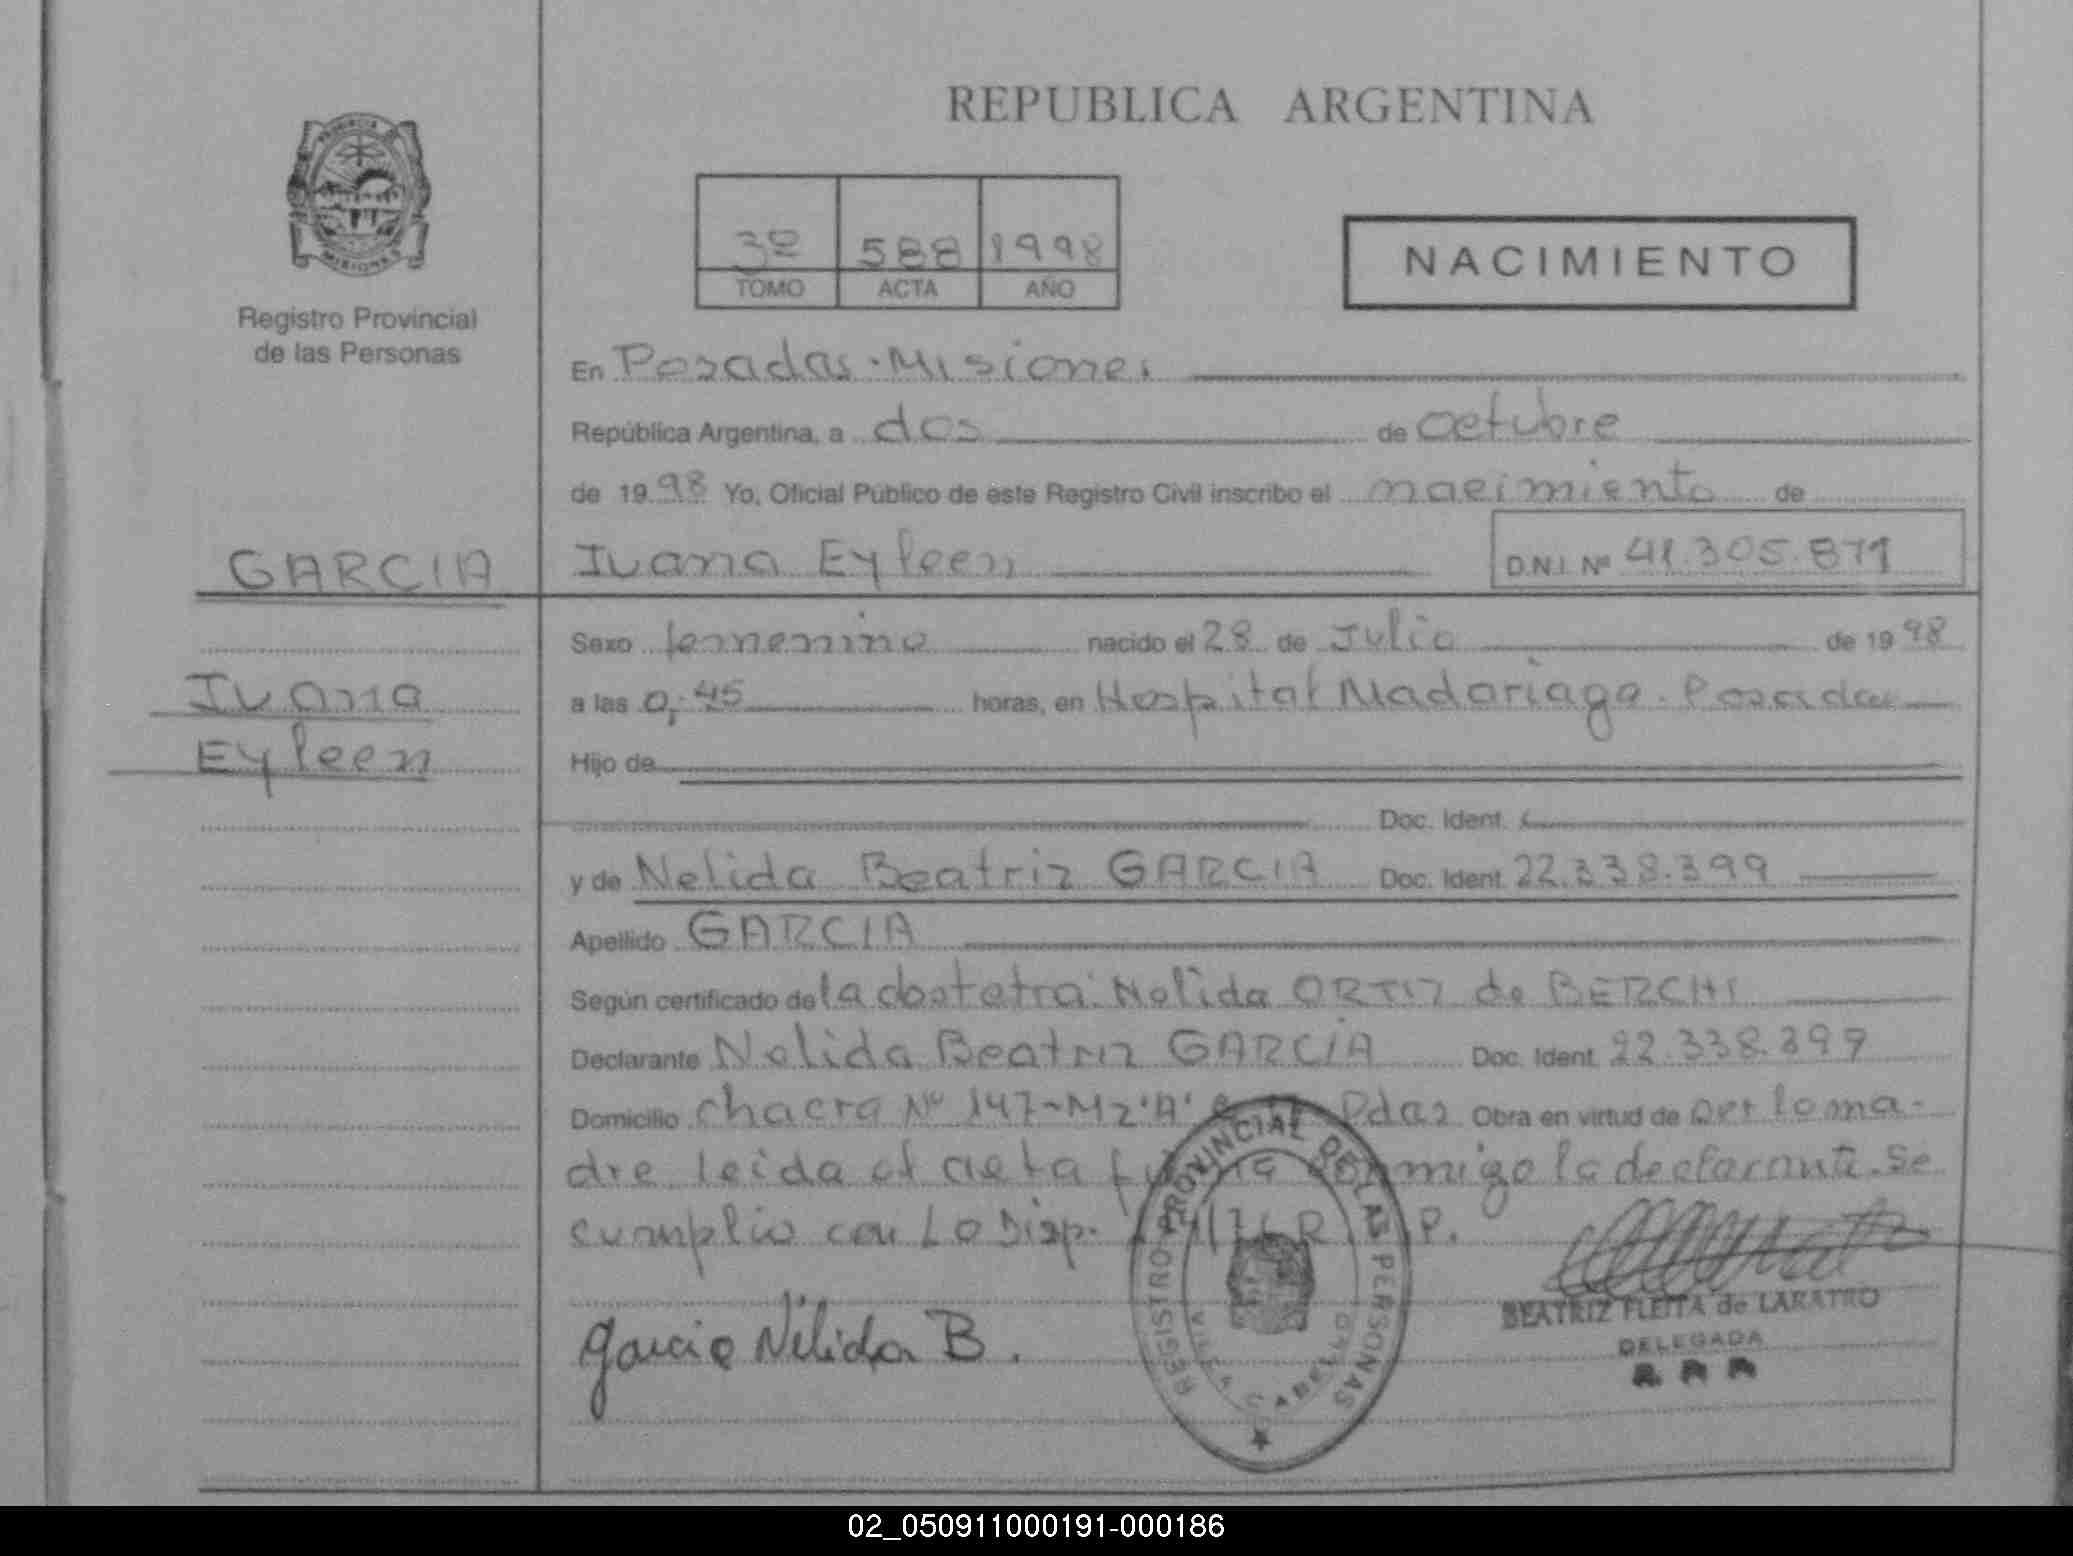 REPUBLICA ARGENTINA
PROVINCIA
MISIONES
Registro Provincial
de las Personas
3º 588 1998
TOMO ACTA AÑO
NACIMIENTO
En Posadas - Misiones
República Argentina, a dos de octubre
de 1998 Yo, Oficial Público de este Registro Civil inscribo el nacimiento de
GARCIA Ivana Eyleen D.N.I. Nº 41.305.871
Sexo femenino nacido el 28 de Julio de 1998
Ivana
a las 0,45 horas, en Hospital Madariaga - Posadas
Eyleen
Hijo de
Doc. Ident.
y de Nelida Beatriz GARCIA Doc. Ident. 22.338.399
Apellido GARCIA
Según certificado de la obstetra: Nelida ORTIZ de BERCHI
Declarante Nelida Beatriz GARCIA Doc. Ident. 22.338.399
Domicilio chacra Nº 147-Mz'A' Pdas Obra en virtud de ser la ma-
dre leida el acta conmigo la declarante. Se
cumplio con La Disp. R. P.
Garcia Nélida B.
REGISTRO PROVINCIAL DE LAS PERSONAS
VILLA CABELLO
BEATRIZ FLEITA de LARATRO
DELEGADA
02_050911000191-000186